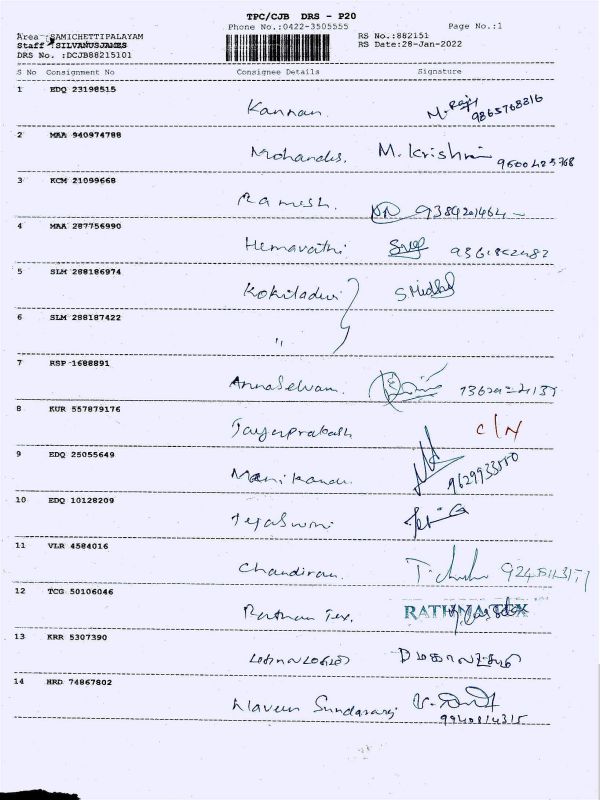 TPC/CJB DRS - P20
Phone No.:0422-3505555 Page No.:1
Area :SAMICHETTIPALAYAM RS No.:882151
Staff :SILVANUSJAMES RS Date:28-Jan-2022
DRS No. :DCJB88215101
S No Consignment No Consignee Details Signature
1 EDQ 23198515
Kannan M. Raju 9865768816
2 MAA 940974788
Mohandas. M. Krishna 9600425768
3 KCM 21099668
Ramesh. 9384201464
4 MAA 287756990
Hemavathi
5 SLM 288186974
Kokiladevi
6 SLM 288187422
"
7 RSP 1688891
AnnaSelvam.
8 KUR 557879176
Jayaprakash C/N
9 EDQ 25055649
Manikandan 9629933550
10 EDQ 10128209
Tejaswini
11 VLR 4584016
Chandiran.
12 TCG 50106046
Rathna Tex. RATHNA TEX
13 KRR 5307390
14 HRD 74867802
Naveen Sundararaj
9940814315